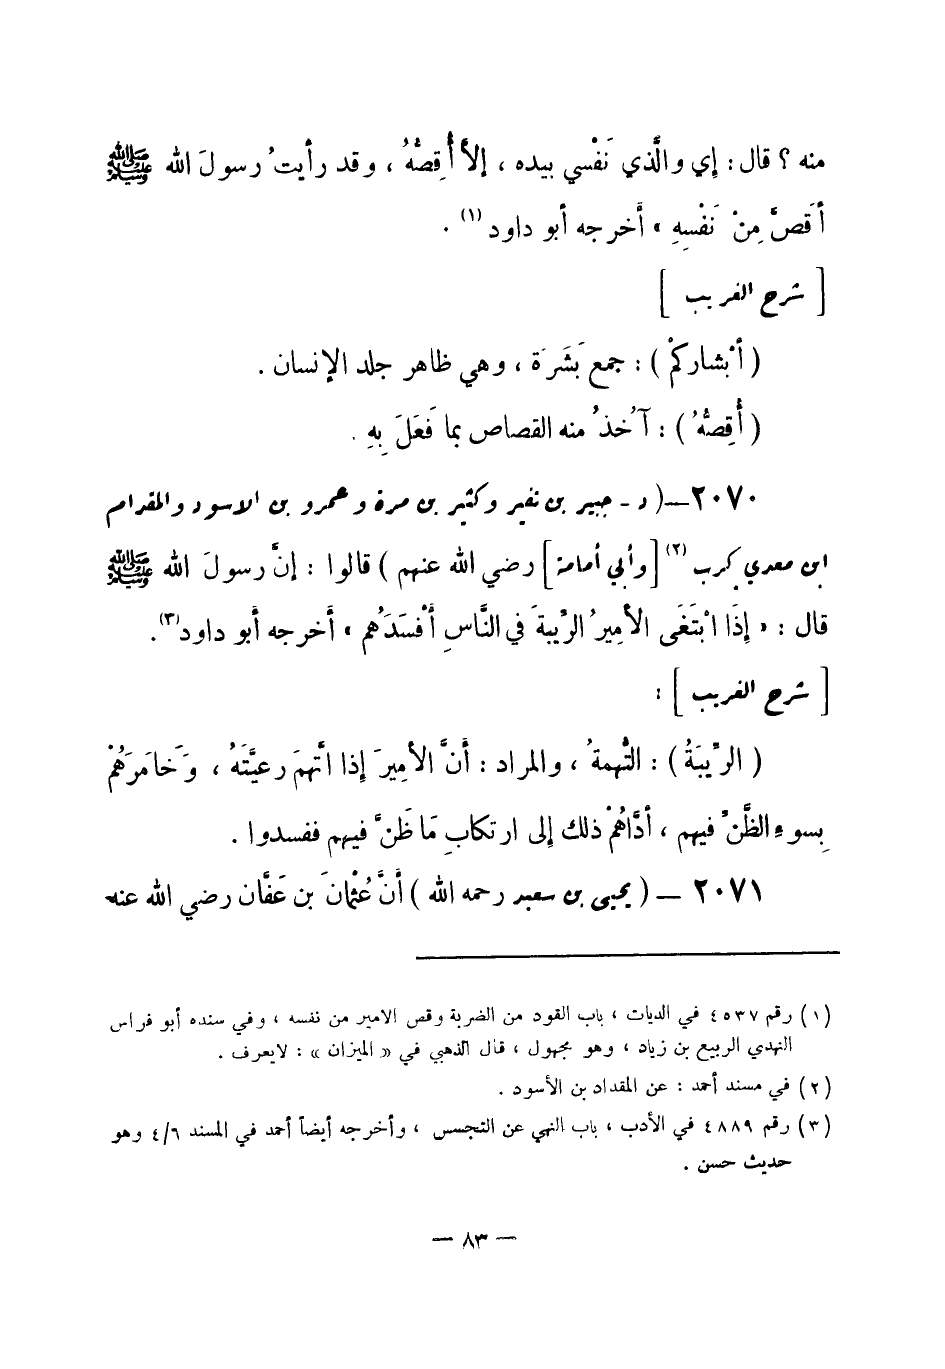 منه ؟ قال : إي والَّذي نَفْسي بيده ، إلاَّ أُقِصُّهُ ، وقد رأيتُ رسولَ الله ﷺ
أقَصَّ مِنْ نَفْسِهِ » أخرجه أبو داود (١) .
[ شرح الغريب ]
( أبْشاركمْ ) : جمع بَشَرَة ، وهي ظاهر جلد الإنسان .
( أُقِصُّهُ ) : آخُذُ منه القصاص بما فَعَلَ بِهِ .
٢٠٧٠ – ( د - جبير بن نفير وكثير بن مرة وعمرو بن الاسود والمقدام
ابن معدي كرب (٢) [ وأبي أمامة ] رضي الله عنهم ) قالوا : إنَّ رسولَ الله ﷺ
قال : « إِذَا ابْتَغَى الأميرُ الرِّيبةَ في النَّاسِ أفْسَدَهُم » أخرجه أبو داود (٣) .
[ شرح الغريب ] :
( الرِّيبَةُ ) : التُّهمةُ ، والمراد : أنَّ الأميرَ إذا اتَّهمَ رعيَّتَهُ ، وَخَامَرَهُمْ
بِسوءِ الظَّنِّ فيهم ، أدَّاهُمْ ذلك إلى ارتكابِ مَا ظَنَّ فيهم ففسدوا .
٢٠٧١ – ( يحيى بن سعيد رحمه الله ) أنَّ عُثْمانَ بن عَفَّان رضي الله عنه
(١) رقم ٤٥٣٧ في الديات ، باب القود من الضربة وقص الامير من نفسه ، وفي سنده أبو فراس
النهدي الربيع بن زياد ، وهو مجهول ، قال الذهبي في « الميزان » : لايعرف .
(٢) في مسند أحمد : عن المقداد بن الأسود .
(٣) رقم ٤٨٨٩ في الأدب ، باب النهي عن التجسس ، وأخرجه أيضاً أحمد في المسند ٤/٦ وهو
حديث حسن .
– ٨٣ –